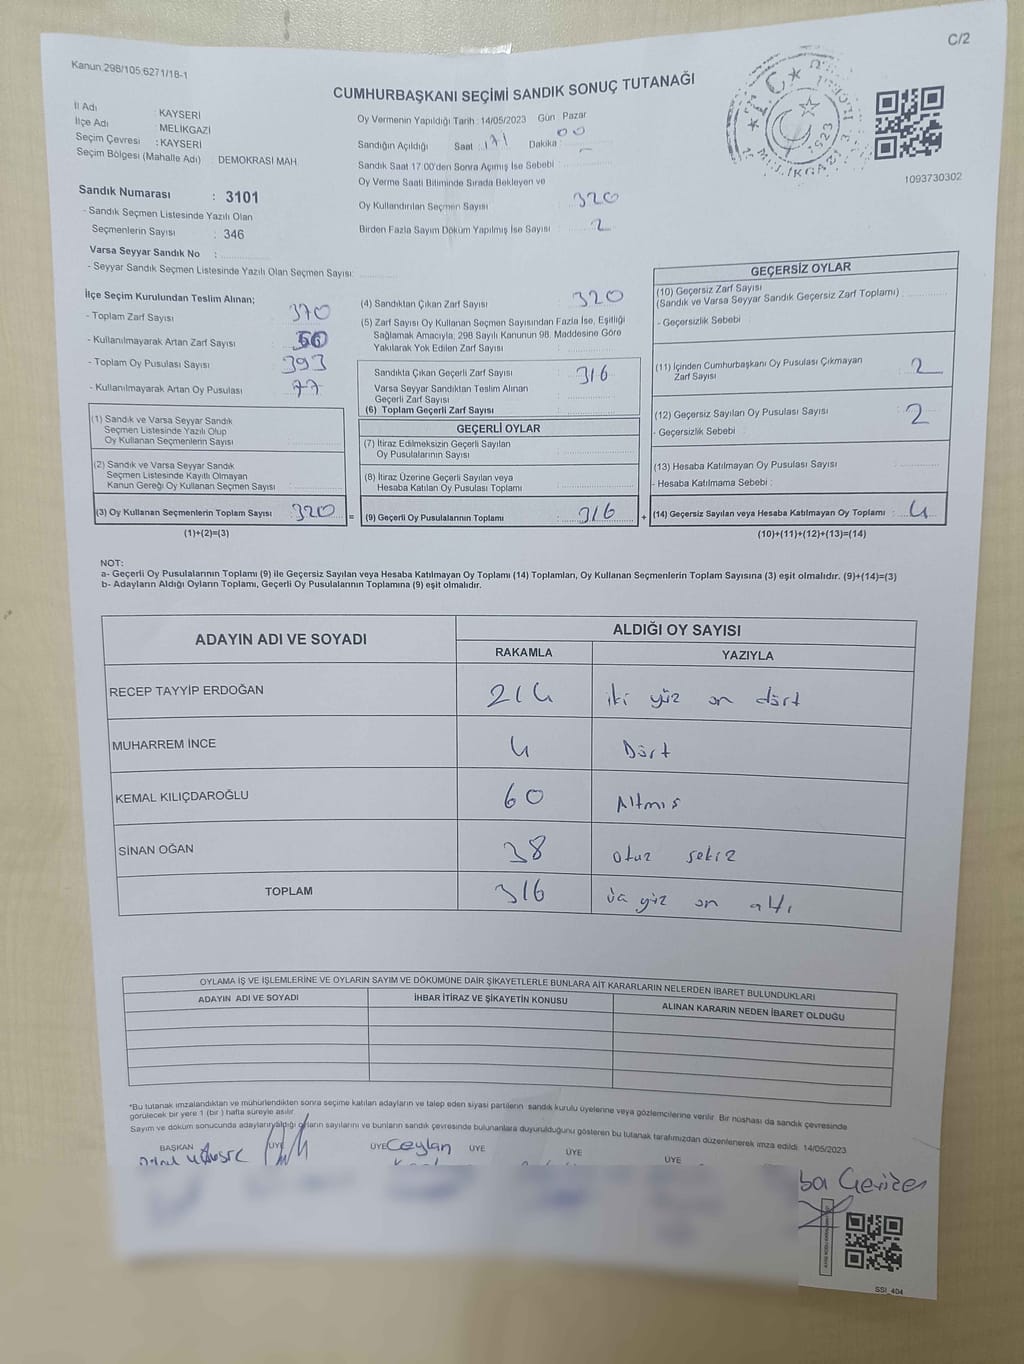 C/2
Kanun:298/105,6271/18-1
CUMHURBAŞKANI SEÇİMİ SANDIK SONUÇ TUTANAĞI
İl Adı : KAYSERİ
İlçe Adı : MELİKGAZİ
Seçim Çevresi : KAYSERİ
Seçim Bölgesi (Mahalle Adı) : DEMOKRASI MAH
Oy Vermenin Yapıldığı Tarih : 14/05/2023 Gün : Pazar
Sandığın Açıldığı Saat : Dakika : 00
Sandık Saat 17:00'den Sonra Açımış İse Sebebi :
Oy Verme Saati Bitiminde Sırada Bekleyen ve
Oy Kullandırılan Seçmen Sayısı : 320
Birden Fazla Sayım Döküm Yapılmış İse Sayısı : 2
1093730302
Sandık Numarası : 3101
- Sandık Seçmen Listesinde Yazılı Olan
Seçmenlerin Sayısı : 346
Varsa Seyyar Sandık No :
- Seyyar Sandık Seçmen Listesinde Yazılı Olan Seçmen Sayısı:
İlçe Seçim Kurulundan Teslim Alınan;
- Toplam Zarf Sayısı : 370
- Kullanılmayarak Artan Zarf Sayısı : 50
- Toplam Oy Pusulası Sayısı : 393
- Kullanılmayarak Artan Oy Pusulası : 77
(1) Sandık ve Varsa Seyyar Sandık
Seçmen Listesinde Yazılı Olup
Oy Kullanan Seçmenlerin Sayısı :
(2) Sandık ve Varsa Seyyar Sandık
Seçmen Listesinde Kayıtlı Olmayan
Kanun Gereği Oy Kullanan Seçmen Sayısı :
(3) Oy Kullanan Seçmenlerin Toplam Sayısı : 320
(1)+(2)=(3)
(4) Sandıktan Çıkan Zarf Sayısı : 320
(5) Zarf Sayısı Oy Kullanan Seçmen Sayısından Fazla İse, Eşitliği
Sağlamak Amacıyla, 298 Sayılı Kanunun 98. Maddesine Göre
Yakılarak Yok Edilen Zarf Sayısı :
Sandıkta Çıkan Geçerli Zarf Sayısı : 316
Varsa Seyyar Sandıktan Teslim Alınan
Geçerli Zarf Sayısı :
(6) Toplam Geçerli Zarf Sayısı :
GEÇERLİ OYLAR
(7) İtiraz Edilmeksizin Geçerli Sayılan
Oy Pusulalarının Sayısı :
(8) İtiraz Üzerine Geçerli Sayılan veya
Hesaba Katılan Oy Pusulası Toplamı :
= (9) Geçerli Oy Pusulalarının Toplamı : 316
GEÇERSİZ OYLAR
(10) Geçersiz Zarf Sayısı
(Sandık ve Varsa Seyyar Sandık Geçersiz Zarf Toplamı) :
- Geçersizlik Sebebi :
(11) İçinden Cumhurbaşkanı Oy Pusulası Çıkmayan
Zarf Sayısı : 2
(12) Geçersiz Sayılan Oy Pusulası Sayısı : 2
- Geçersizlik Sebebi :
(13) Hesaba Katılmayan Oy Pusulası Sayısı :
- Hesaba Katılmama Sebebi :
+ (14) Geçersiz Sayılan veya Hesaba Katılmayan Oy Toplamı : 4
(10)+(11)+(12)+(13)=(14)
NOT:
a- Geçerli Oy Pusulalarının Toplamı (9) ile Geçersiz Sayılan veya Hesaba Katılmayan Oy Toplamı (14) Toplamları, Oy Kullanan Seçmenlerin Toplam Sayısına (3) eşit olmalıdır. (9)+(14)=(3)
b- Adayların Aldığı Oyların Toplamı, Geçerli Oy Pusulalarının Toplamına (9) eşit olmalıdır.
ADAYIN ADI VE SOYADI ALDIĞI OY SAYISI
RAKAMLA YAZIYLA
RECEP TAYYİP ERDOĞAN 214 iki yüz on dört
MUHARREM İNCE 4 Dört
KEMAL KILIÇDAROĞLU 60 Altmış
SİNAN OĞAN 38 otuz sekiz
TOPLAM 316 üç yüz on altı
OYLAMA İŞ VE İŞLEMLERİNE VE OYLARIN SAYIM VE DÖKÜMÜNE DAİR ŞİKAYETLERLE BUNLARA AİT KARARLARIN NELERDEN İBARET BULUNDUKLARI
ADAYIN ADI VE SOYADI İHBAR İTİRAZ VE ŞİKAYETİN KONUSU ALINAN KARARIN NEDEN İBARET OLDUĞU
*Bu tutanak imzalandıktan ve mühürlendikten sonra seçime katılan adayların ve talep eden siyasi partilerin sandık kurulu üyelerine veya gözlemcilerine verilir. Bir nüshası da sandık çevresinde
görülecek bir yere 1 (bir ) hafta süreyle asılır.
Sayım ve döküm sonucunda adayların aldığı oyların sayılarını ve bunların sandık çevresinde bulunanlara duyurulduğunu gösteren bu tutanak tarafımızdan düzenlenerek imza edildi. 14/05/2023
BAŞKAN ÜYE ÜYE Ceylan ÜYE ÜYE ÜYE
SSI_404